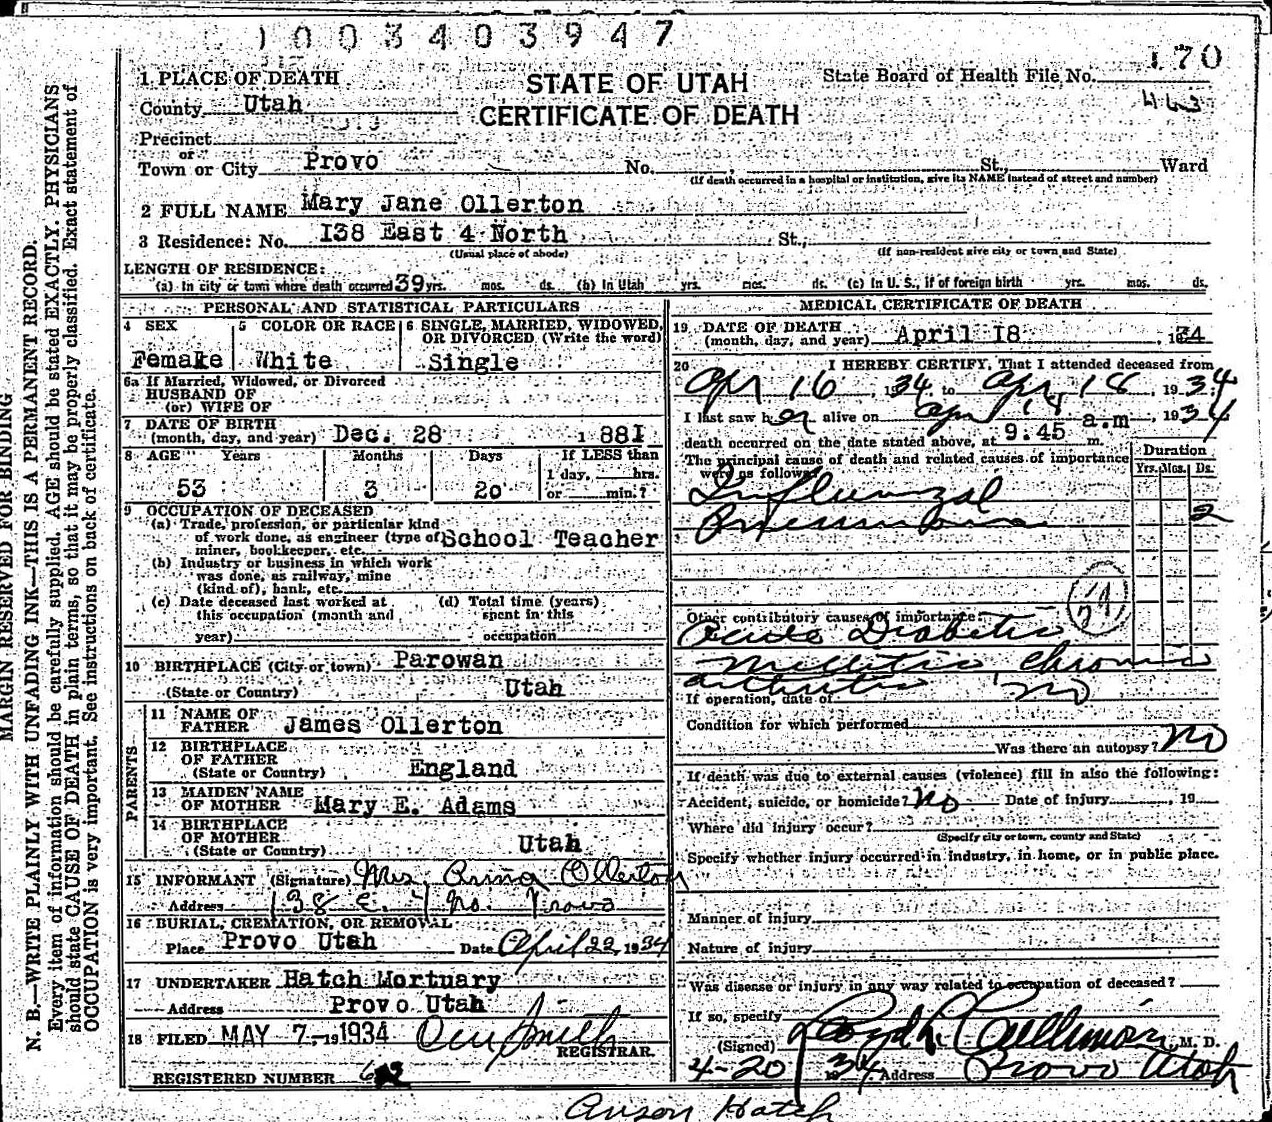 1003403947
170
1 PLACE OF DEATH
STATE OF UTAH
State Board of Health File No.
County Utah
CERTIFICATE OF DEATH
Precinct
or
Town or City Provo No. St., Ward
(If death occurred in a hospital or institution, give its NAME instead of street and number)
2 FULL NAME Mary Jane Ollerton
3 Residence: No. I38 East 4 North St.,
(Usual place of abode) (If non-resident give city or town and State)
LENGTH OF RESIDENCE:
(a) In city or town where death occurred 39 yrs. mos. ds. (b) In Utah yrs. mos. ds. (c) In U. S., if of foreign birth yrs. mos. ds.
PERSONAL AND STATISTICAL PARTICULARS
4 SEX 5 COLOR OR RACE 6 SINGLE, MARRIED, WIDOWED, OR DIVORCED (Write the word)
Femake White Single
6a If Married, Widowed, or Divorced
HUSBAND OF
(or) WIFE OF
7 DATE OF BIRTH
(month, day, and year) Dec. 28 1 88I
8 AGE Years Months Days If LESS than
1 day, hrs.
53 3 20 or min.?
9 OCCUPATION OF DECEASED
(a) Trade, profession, or particular kind
of work done, as engineer (type of School Teacher
miner, bookkeeper, etc.
(b) Industry or business in which work
was done, as railway, mine
(kind of), bank, etc.
(c) Date deceased last worked at (d) Total time (years)
this occupation (month and spent in this
year) occupation
10 BIRTHPLACE (City or town) Parowan
(State or Country) Utah
PARENTS
11 NAME OF
FATHER James Ollerton
12 BIRTHPLACE
OF FATHER
(State or Country) England
13 MAIDEN NAME
OF MOTHER Mary E. Adams
14 BIRTHPLACE
OF MOTHER
(State or Country) Utah
15 INFORMANT (Signature) Mrs Anna Ollerton
Address 138 E. 4 No. Provo
16 BURIAL, CREMATION, OR REMOVAL
Place Provo Utah Date April 22, 1934
17 UNDERTAKER Hatch Mortuary
Address Provo Utah
18 FILED MAY 7, 1934 Smith
REGISTRAR.
REGISTERED NUMBER
MEDICAL CERTIFICATE OF DEATH
19 DATE OF DEATH
(month, day, and year) April I8 , 1934
20 I HEREBY CERTIFY, That I attended deceased from
Apr 16, 1934 to Apr 18, 1934
I last saw her alive on Apr 18 a.m 1934
death occurred on the date stated above, at 9:45 m.
The principal cause of death and related causes of importance
were as follows:
Duration
Yrs. Mos. Ds.
Influenzal
Pneumonia 2
Other contributory causes of importance:
Acute Diabetis
Mellitis Chronic
arthritis
If operation, date of no
Condition for which performed
Was there an autopsy? no
If death was due to external causes (violence) fill in also the following:
Accident, suicide, or homicide? no Date of injury , 19
Where did injury occur?
(Specify city or town, county and State)
Specify whether injury occurred in industry, in home, or in public place.
Manner of injury
Nature of injury
Was disease or injury in any way related to occupation of deceased?
If so, specify
(Signed) Lloyd L. Cullimore, M. D.
4-20 1934 Address Provo Utah
Anson Hatch
MARGIN RESERVED FOR BINDING
N. B.—WRITE PLAINLY WITH UNFADING INK—THIS IS A PERMANENT RECORD.
Every item of information should be carefully supplied. AGE should be stated EXACTLY. PHYSICIANS
should state CAUSE OF DEATH in plain terms, so that it may be properly classified. Exact statement of
OCCUPATION is very important. See instructions on back of certificate.